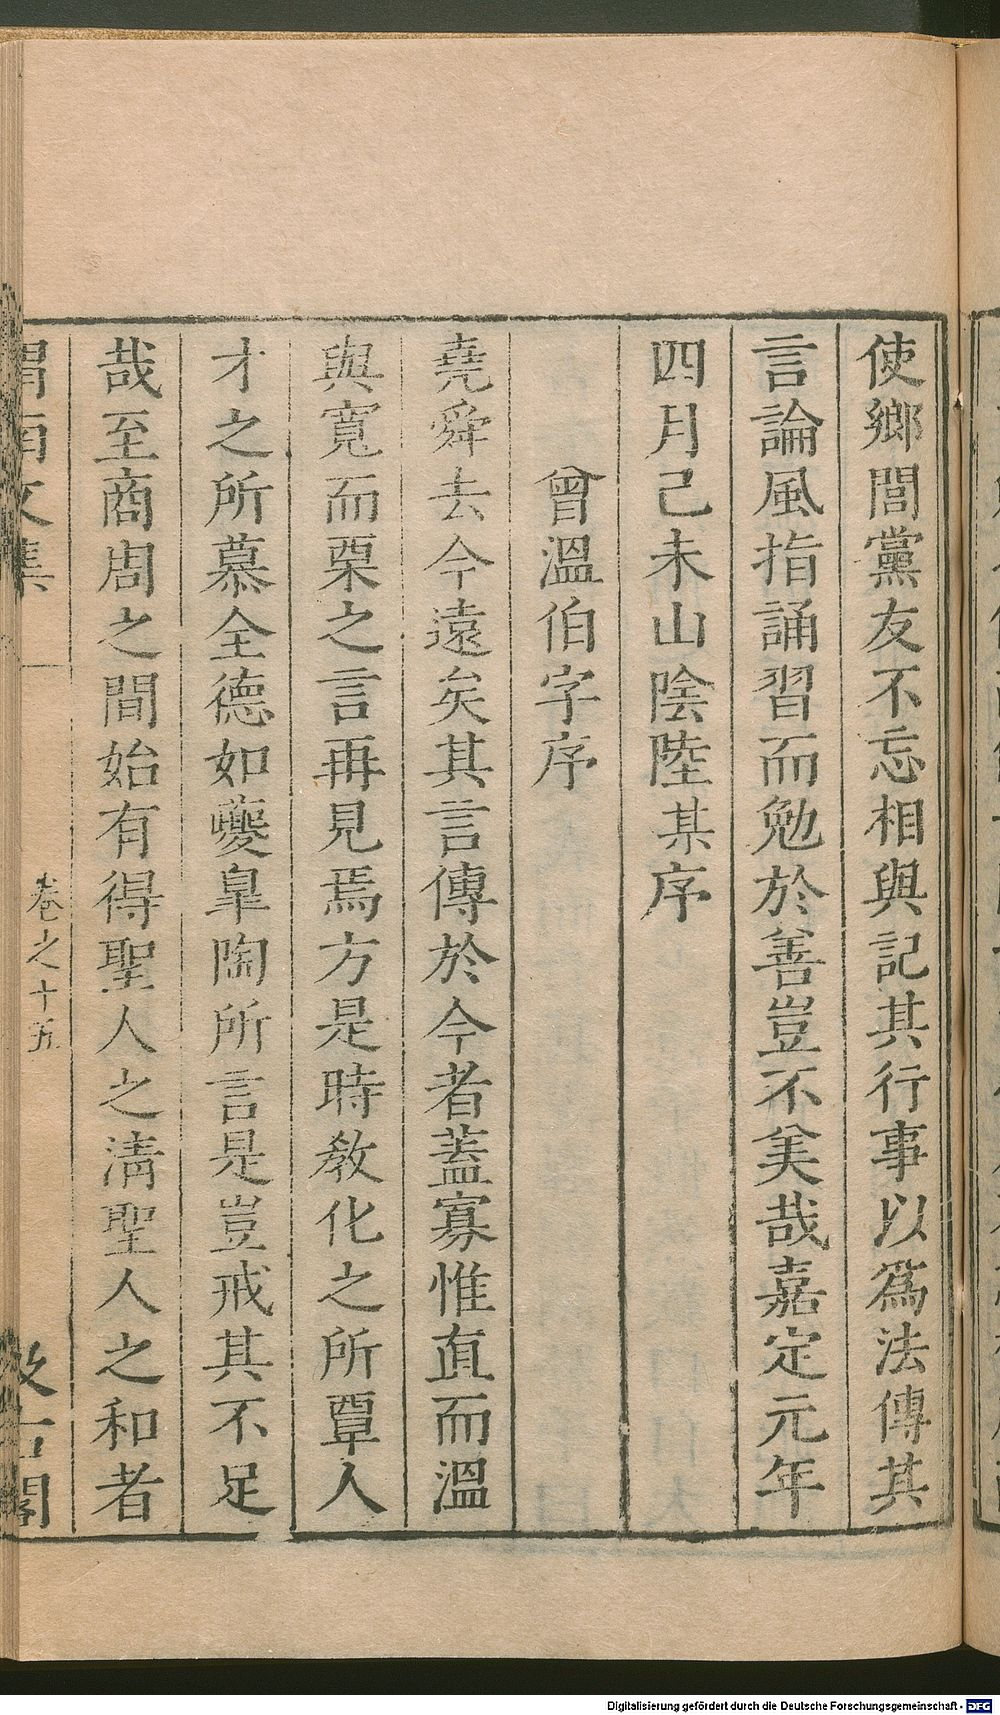 使鄉閭黨友不忘相與記其行事以爲法傳其
言論風指誦習而勉於善豈不美哉嘉定元年
四月己未山陰陸某序
曾溫伯字序
堯舜去今遠矣其言傳於今者蓋寡惟直而溫
與寬而栗之言再見焉方是時敎化之所覃人
才之所慕全德如夔臯陶所言是豈戒其不足
哉至商周之間始有得聖人之淸聖人之和者
渭南文集
卷之十五
汲古閣
Digitalisierung gefördert durch die Deutsche Forschungsgemeinschaft - DFG